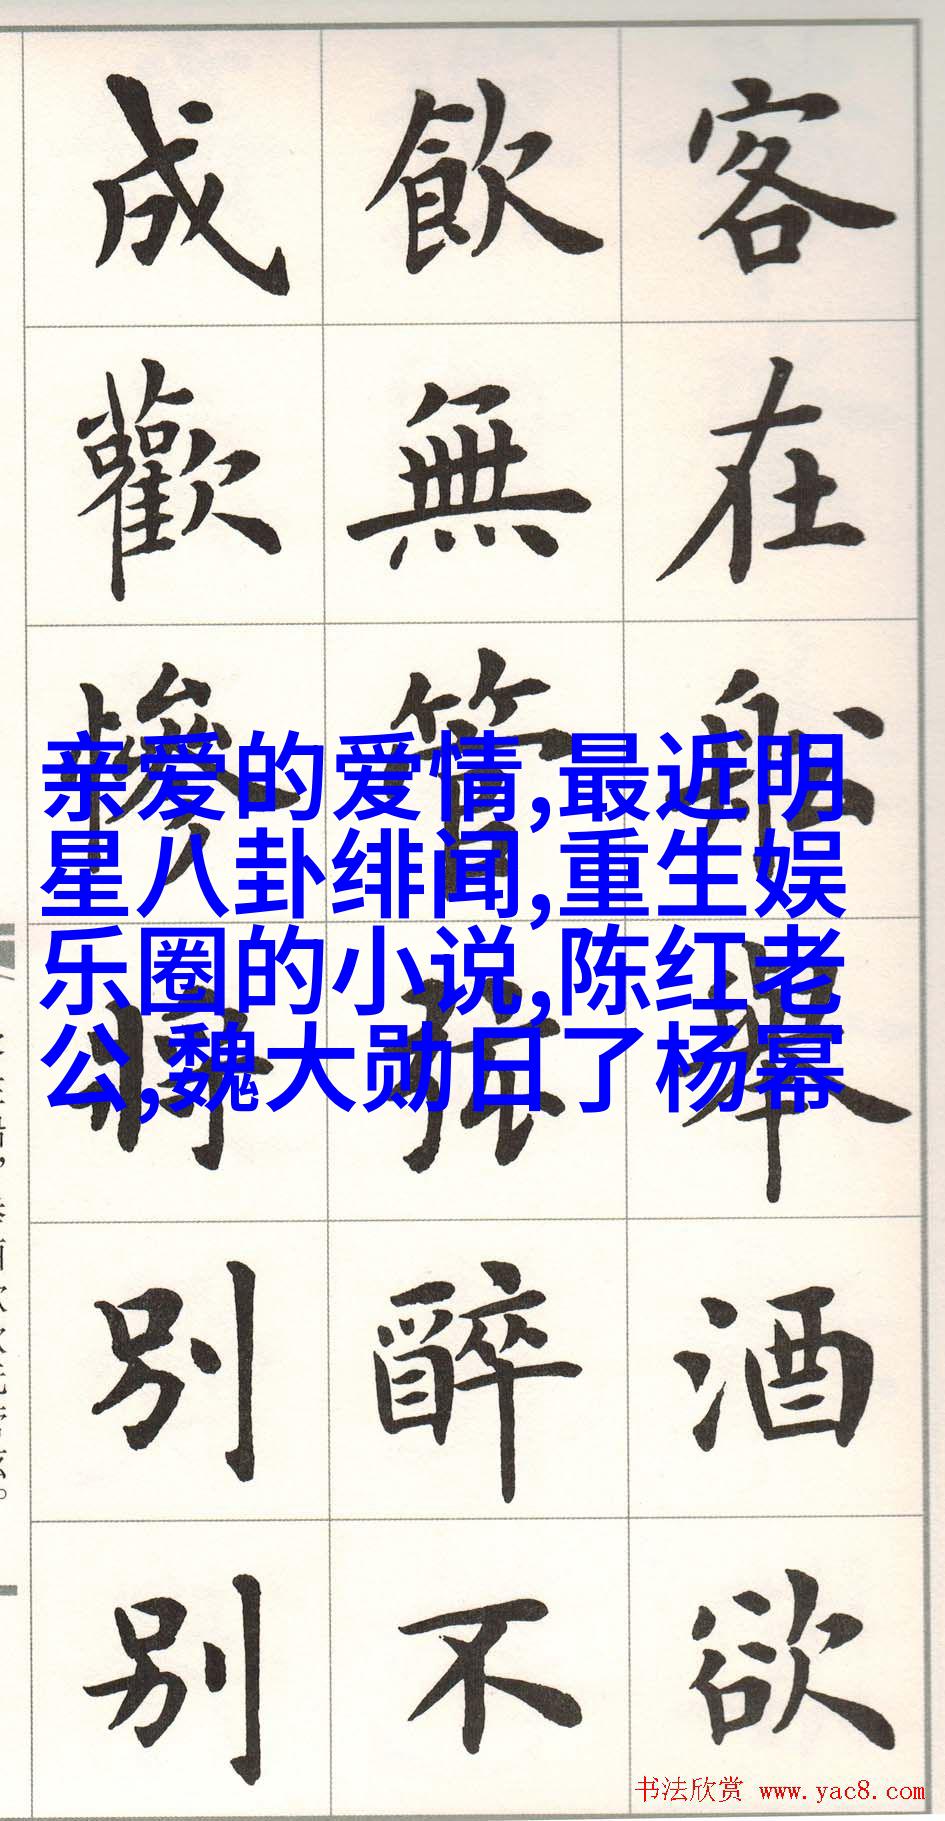 客在船舉酒欲
飲無管絃醉不
成歡慘將別別
亲爱的爱情,最近明
星八卦绯闻,重生娱
乐圈的小说,陈红老
公,魏大勋日了杨幂
书法欣赏 www.yac8.com